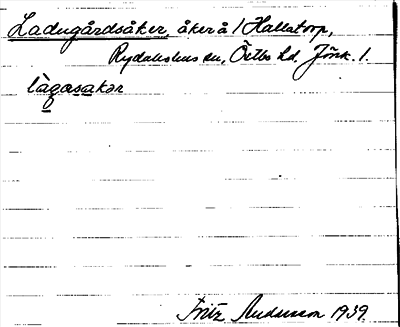 Ladugårdsåker, åker å 1 Hallatorp,
Rydaholms sn, Östbo hd, Jönk. l.
làgasakər
Fritz Andersson 1939.